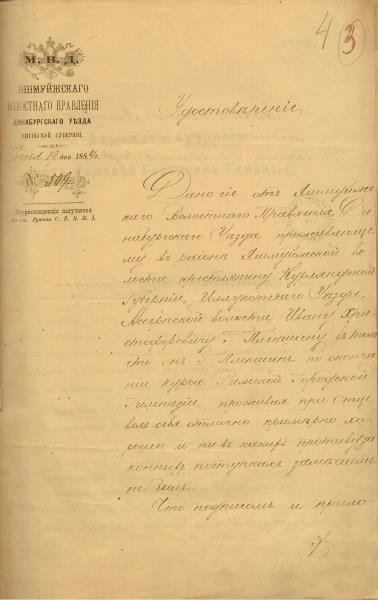 4 3
М. В. Д.
ЯШМУЙЖСКАГО
ВОЛОСТНАГО ПРАВЛЕНІЯ
ДИНАБУРГСКАГО УѢЗДА
ВИТЕБСКОЙ ГУБЕРНІИ,
19 дня 1884 г.
№ 509
Корреспонденція получается
Удостовѣреніе
Дано сіе отъ Яшмуйж-
скаго Волостнаго Правленія Ди-
набургскаго Уѣзда проживающе-
му въ районѣ Яшмуйжской во-
лости крестьянину Курляндской
Губерніи, Иллукстскаго Уѣзда,
волости Ивану Хри-
стофоровичу Г. Плекшану въ томъ,
что онъ Г. Плекшанъ по оконча-
ніи курса Рижской Городской
Гимназіи, проживая при отцѣ
велъ себя отлично примѣрно хо-
рошо и ни въ какихъ противуза-
конныхъ поступкахъ замѣченъ
не былъ.
Что подписомъ и прило